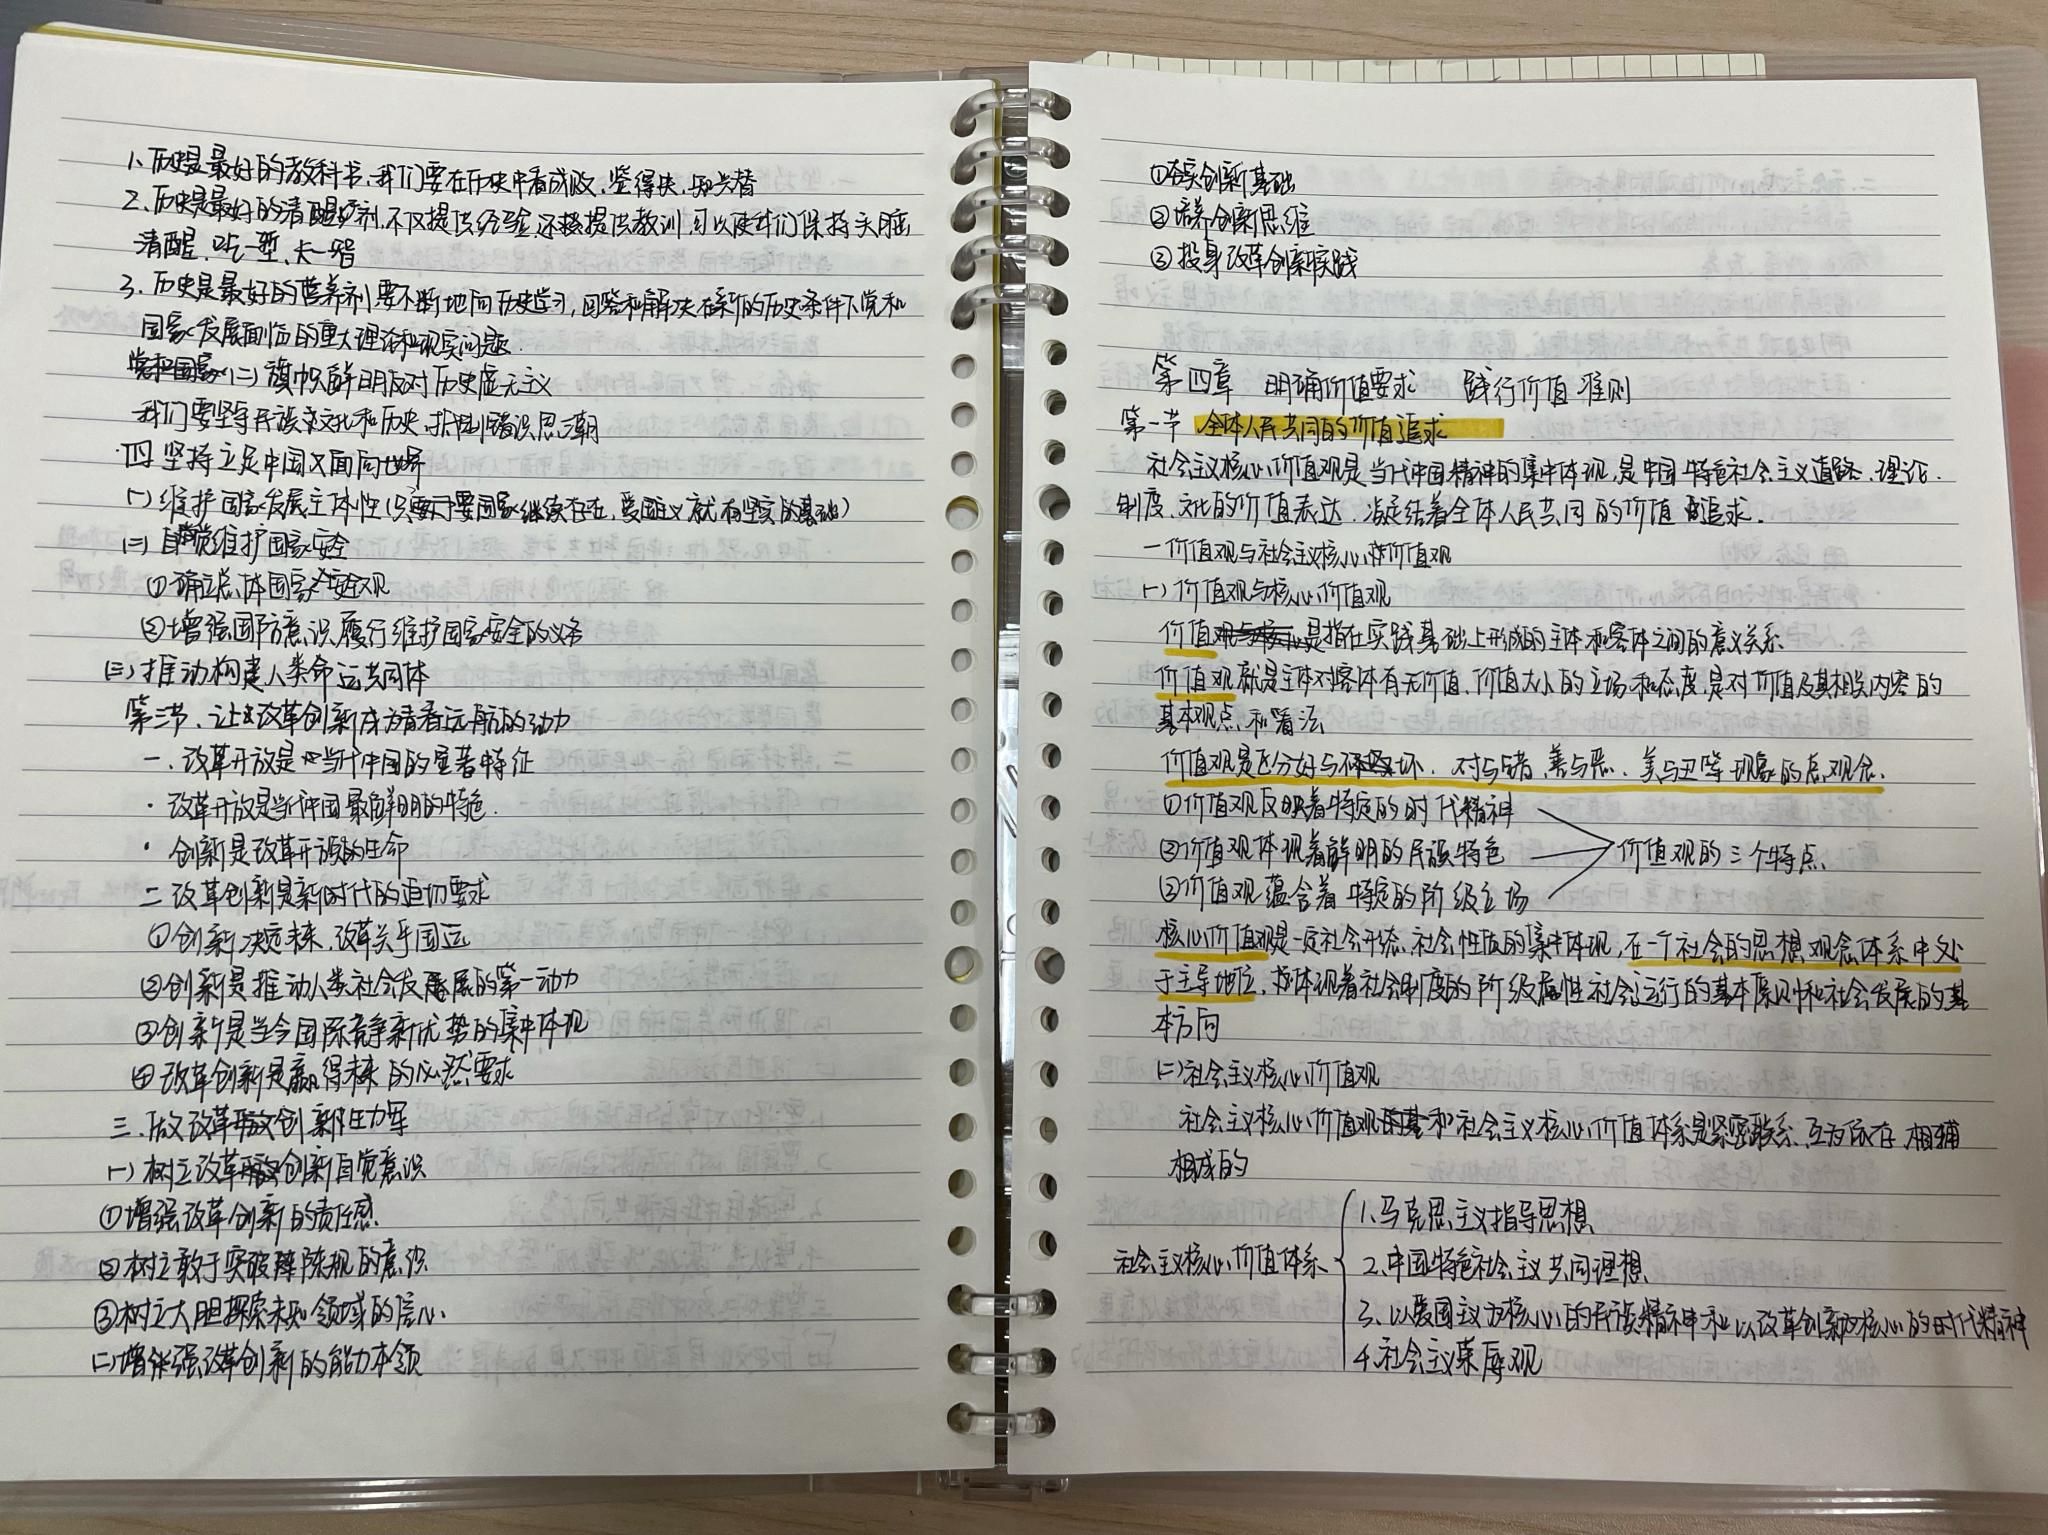 1、历史是最好的教科书、我们要在历史中看成败、鉴得失、知兴替
2、历史是最好的清醒剂,不仅提供经验,还提供教训,可以使我们保持头脑
清醒、吃一堑、长一智
3、历史是最好的营养剂要不断地向历史学习,回答和解决在新的历史条件下党和
国家发展面临的重大理论和现实问题.
(二)旗帜鲜明反对历史虚无主义
我们要坚守民族文化和历史,抵制错误思潮
四 坚持立足中国又面向世界
(一)维护国家发展主体性(只要国家继续存在,爱国主义就有坚实的基础)
(二)自觉维护国家安全
①确立总体国家安全观
②增强国防意识履行维护国家安全的义务
(三)推动构建人类命运共同体
第三节、让改革创新成为青春远航的动力
一、改革开放是当代中国的显著特征
·改革开放是当代中国最鲜明的特色.
·创新是改革开放的生命
二 改革创新是新时代的迫切要求
①创新决定未来、改革关乎国运
②创新是推动人类社会发展的第一动力
③创新是当今国际竞争新优势的集中体现
④改革创新是赢得未来的必然要求
三、做改革创新生力军
(一)树立改革创新自觉意识
①增强改革创新的责任感.
②树立敢于突破陈规的意识
③树立大胆探索未知领域的信心.
(二)增强改革创新的能力本领
①夯实创新基础
②培养创新思维
③投身改革创新实践
第四章 明确价值要求 践行价值准则
第一节 全体人民共同的价值追求
社会主义核心价值观是当代中国精神的集中体现,是中国特色社会主义道路、理论、
制度、文化的价值表达、凝结着全体人民共同的价值追求.
一价值观与社会主义核心价值观
(一)价值观与核心价值观
价值是指在实践基础上形成的主体和客体之间的意义关系.
价值观就是主体对客体有无价值、价值大小的立场和态度,是对价值及其相关内容的
基本观点和看法
价值观是区分好与坏、对与错、善与恶、美与丑等现象的总观念.
①价值观反映着特定的时代精神
②价值观体现着鲜明的民族特色 价值观的三个特点.
③价值观蕴含着特定的阶级立场
核心价值观是一定社会形态社会性质的集中体现,在一个社会的思想观念体系中处
于主导地位,体现着社会制度的阶级属性社会运行的基本原则和社会发展的基
本方向
(二)社会主义核心价值观
社会主义核心价值观和社会主义核心价值体系是紧密联系、互为依存、相辅
相成的
社会主义核心价值体系
1、马克思主义指导思想
2、中国特色社会主义共同理想
3、以爱国主义为核心的民族精神和以改革创新为核心的时代精神
4、社会主义荣辱观